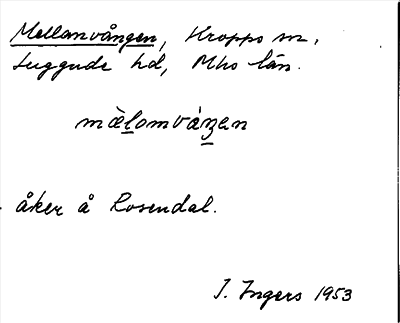 Mellanvången, Kropps sn,
Luggude hd, Mhs län.
mèlomvàŋen
åker å Rosendal.
I. Ingers 1953